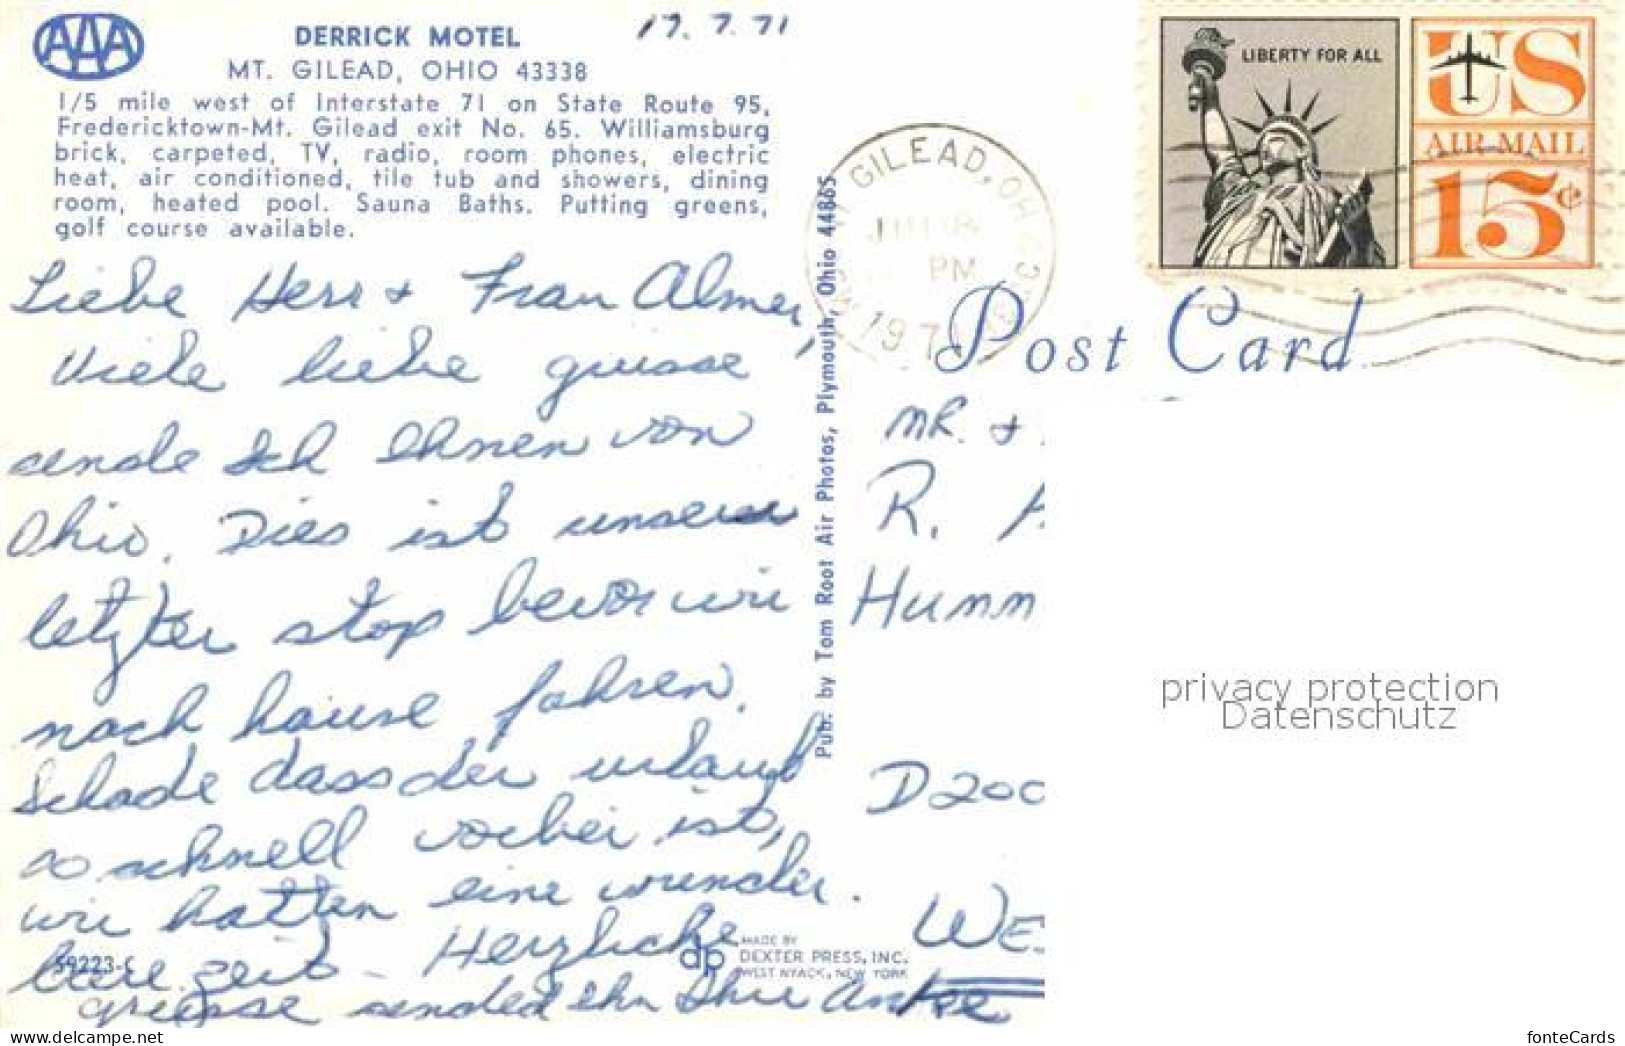 AAA
DERRICK MOTEL
17. 7. 71
MT. GILEAD, OHIO 43338
1/5 mile west of Interstate 71 on State Route 95,
Fredericktown-Mt. Gilead exit No. 65. Williamsburg
brick, carpeted, TV, radio, room phones, electric
heat, air conditioned, tile tub and showers, dining
room, heated pool. Sauna Baths. Putting greens,
golf course available.
Liebe Herr + Frau Almer,
Viele liebe grusse
sende Ich Ihnen von
Ohio. Dies ist unserer
letzter stop bevor wir
nach hause fahren.
Schade dass der urlaub
so schnell vorbei ist,
wir hatten eine wunder.
bare zeit – Herzliche
grusse sended Ihn Ihre Antje
59223-C
Pub. by Tom Root Air Photos, Plymouth, Ohio 44865
MADE BY
dp DEXTER PRESS, INC.
WEST NYACK, NEW YORK
GILEAD, OH
PM
1971
LIBERTY FOR ALL
US
AIR MAIL
15¢
Post Card
MR. &
R. A
HUMM
D200
WES
privacy protection
Datenschutz
www.delcampe.net
fonteCards